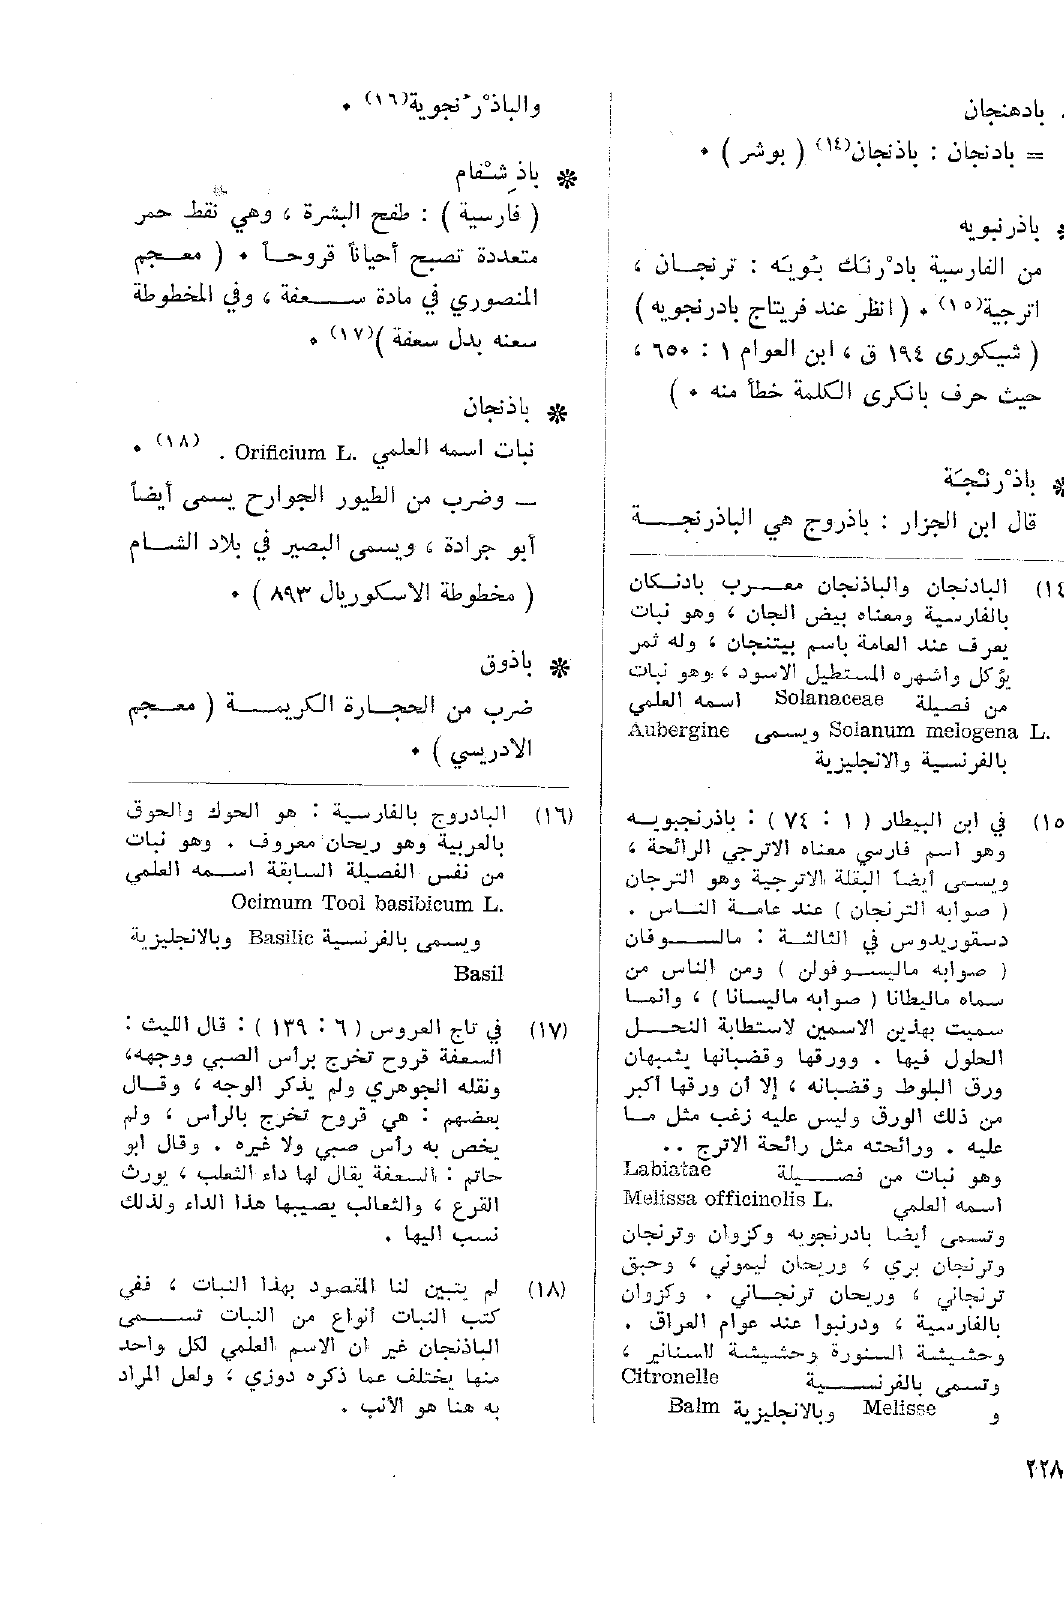 بادهنجان
= بادنجان : باذنجان(١٤) ( بوشر ) ٠
* باذرنبويه
من الفارسية بادْرنك بُويَه : ترنجــان ،
اترجية(١٥) ٠ ( انظر عند فريتاج بادرنجويه )
( شيكورى ١٩٤ ق ، ابن العوام ١ : ٦٥٠ ،
حيث حرف بانكرى الكلمة خطأ منه ٠ )
* باذْرنْجَـَة
قال ابن الجزار : باذروج هي الباذرنجـــة
(١٤) البادنجان والباذنجان معـــرب بادنـكان
بالفارسية ومعناه بيض الجان ، وهو نبات
يعرف عند العامة باسم بيتنجان ، وله ثمر
يؤكل واشهره المستطيل الاسود ، وهو نبات
من فصيلة Solanaceae اسمه العلمي
Solanum melogena L. ويسمى Aubergine
بالفرنسية والانجليزية
(١٥) في ابن البيطار ( ١ : ٧٤ ) : باذرنجبويــه
وهو اسم فارسي معناه الاترجي الرائحة ،
ويسمى أيضاً البقلة الاترجية وهو الترجان
( صوابه الترنجان ) عند عامـة النـاس .
دسقوريدوس في الثالثـة : مالـــوفان
( صوابه ماليـــوفولن ) ومن الناس من
سماه ماليطانا ( صوابه ماليسانا ) ، وانمـا
سميت بهذين الاسمين لاستطابة النحــل
الحلول فيها . وورقها وقضبانها يشبهان
ورق البلوط وقضبانه ، إلا أن ورقها اكبر
من ذلك الورق وليس عليه زغب مثل مــا
عليه . ورائحته مثل رائحة الاترج ..
وهو نبات من فصـــيلة Labiatae
اسمه العلمي Melissa officinolis L.
وتسمى أيضا بادرنجويه وكزوان وترنجان
وترنجان بري ، وريحان ليموني ، وحبق
ترنجاني ، وريحان ترنجــاني . وكزوان
بالفارسية ، ودرنبوا عند عوام العراق .
وحشـيشة السنورة وحشيشة السنانير ،
وتسمى بالفرنســـية Citronelle
و Melisse وبالانجليزية Balm
٢٢٨
والباذْرَنجوية(١٦) ٠
* باذِ شْفام
( فارسية ) : طفح البشرة ، وهي نقط حمر
متعددة تصبح أحياناً قروحــاً ٠ ( معــجم
المنصوري في مادة ســـعفة ، وفي المخطوطة
سعنه بدل سعفة )(١٧) ٠
* باذنجان
نبات اسمه العلمي Orificium L. . (١٨) ٠
— وضرب من الطيور الجوارح يسمى أيضاً
أبو جرادة ، ويسمى البصير في بلاد الشــام
( مخطوطة الاسكوريال ٨٩٣ ) ٠
* باذوق
ضرب من الحجــارة الكريمـــة ( معــجم
الادريسي ) ٠
(١٦) البادروج بالفارسية : هو الحوك والحوق
بالعربية وهو ريحان معروف . وهو نبات
من نفس الفصيلة السابقة اســمه العلمي
Ocimum Tool basibicum L.
ويسمى بالفرنسية Basilic وبالانجليزية
Basil
(١٧) في تاج العروس ( ٦ : ١٣٩ ) : قال الليث :
السعفة قروح تخرج برأس الصبي ووجهه،
ونقله الجوهري ولم يذكر الوجه ، وقــال
بعضهم : هي قروح تخرج بالرأس ، ولم
يخص به رأس صبي ولا غيره . وقال ابو
حاتم : السعفة يقال لها داء الثعلب ، يورث
القرع ، والثعالب يصيبها هذا الداء ولذلك
نسب اليها .
(١٨) لم يتبين لنا المقصود بهذا النبات ، ففي
كتب النبات أنواع من النبات تســـمى
الباذنجان غير ان الاسم العلمي لكل واحد
منها يختلف عما ذكره دوزي ، ولعل المراد
به هنا هو الأنب .